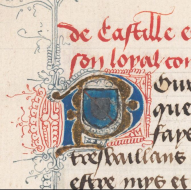 de Castille e
son loyal con
Pour
que
fays
tresvaillans
estre mys et